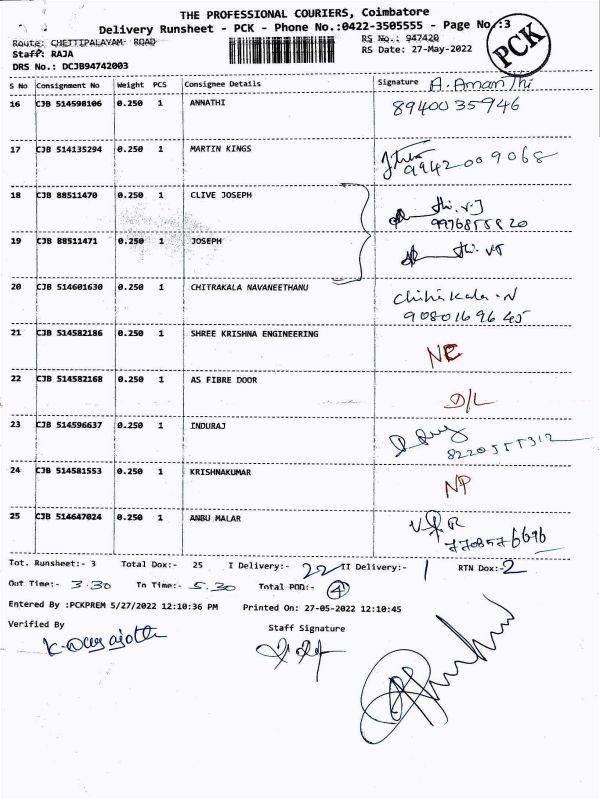 THE PROFESSIONAL COURIERS, Coimbatore
Delivery Runsheet - PCK - Phone No.:0422-3505555 - Page No.:3
Route: CHETTIPALAYAM ROAD RS No.: 947420
Staff: RAJA RS Date: 27-May-2022
PCK
DRS No.: DCJB94742003
S No Consignment No Weight PCS Consignee Details Signature A. Aman Thi
16 CJB 514598106 0.250 1 ANNATHI 8940035946
17 CJB 514135294 0.250 1 MARTIN KINGS 9942009068
18 CJB 88511470 0.250 1 CLIVE JOSEPH
9976855820
19 CJB 88511471 0.250 1 JOSEPH
20 CJB 514601630 0.250 1 CHITRAKALA NAVANEETHANU Chitrakala-N
9080169645
21 CJB 514582186 0.250 1 SHREE KRISHNA ENGINEERING
22 CJB 514582168 0.250 1 AS FIBRE DOOR D/L
23 CJB 514596637 0.250 1 INDURAJ
8220555312
24 CJB 514581553 0.250 1 KRISHNAKUMAR NP
25 CJB 514647024 0.250 1 ANBU MALAR
Tot. Runsheet:- 3 Total Dox:- 25 I Delivery:- 22 II Delivery:- 1 RTN Dox:- 2
Out Time:- 3.30 In Time:- 5.30 Total POD:- 4
Entered By :PCKPREM 5/27/2022 12:10:36 PM Printed On: 27-05-2022 12:10:45
Verified By Staff Signature